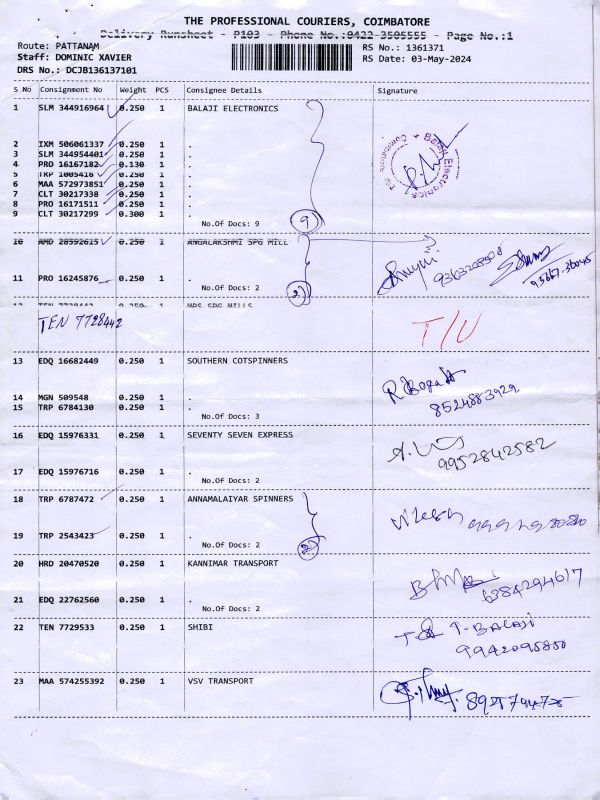 THE PROFESSIONAL COURIERS, COIMBATORE
Delivery Runsheet - P103 - Phone No.:0422-3505555 - Page No.:1
Route: PATTANAM
Staff: DOMINIC XAVIER
DRS No.: DCJB136137101
RS No.: 1361371
RS Date: 03-May-2024
S No Consignment No Weight PCS Consignee Details Signature
1 SLM 344916964 0.250 1 BALAJI ELECTRONICS
2 IXM 506061337 0.250 1 .
3 SLM 344954401 0.250 1 .
4 PRO 16167182 0.130 1 .
5 TRP 1005416 0.250 1 .
6 MAA 572973851 0.250 1 .
7 CLT 30217338 0.250 1 .
8 PRO 16171511 0.250 1 .
9 CLT 30217299 0.300 1 .
No.Of Docs: 9
9
Balaji Electronics
10 AMD 28592615 0.250 1 ANGALAKSHMI SPG MILL
11 PRO 16245876 0.250 1 .
No.Of Docs: 2
2
12 TEN 7728442 0.250 1 MPS SPG MILLS
TEN 7728442
T/U
13 EDQ 16682449 0.250 1 SOUTHERN COTSPINNERS
14 MGN 509548 0.250 1 .
15 TRP 6784130 0.250 1 .
No.Of Docs: 3
8524883929
16 EDQ 15976331 0.250 1 SEVENTY SEVEN EXPRESS
9952842582
17 EDQ 15976716 0.250 1 .
No.Of Docs: 2
18 TRP 6787472 0.250 1 ANNAMALAIYAR SPINNERS
19 TRP 2543423 0.250 1 .
No.Of Docs: 2
2
20 HRD 20470520 0.250 1 KANNIMAR TRANSPORT
6384294617
21 EDQ 22762560 0.250 1 .
No.Of Docs: 2
22 TEN 7729533 0.250 1 SHIBI
T-BALAJI
9942095850
23 MAA 574255392 0.250 1 VSV TRANSPORT